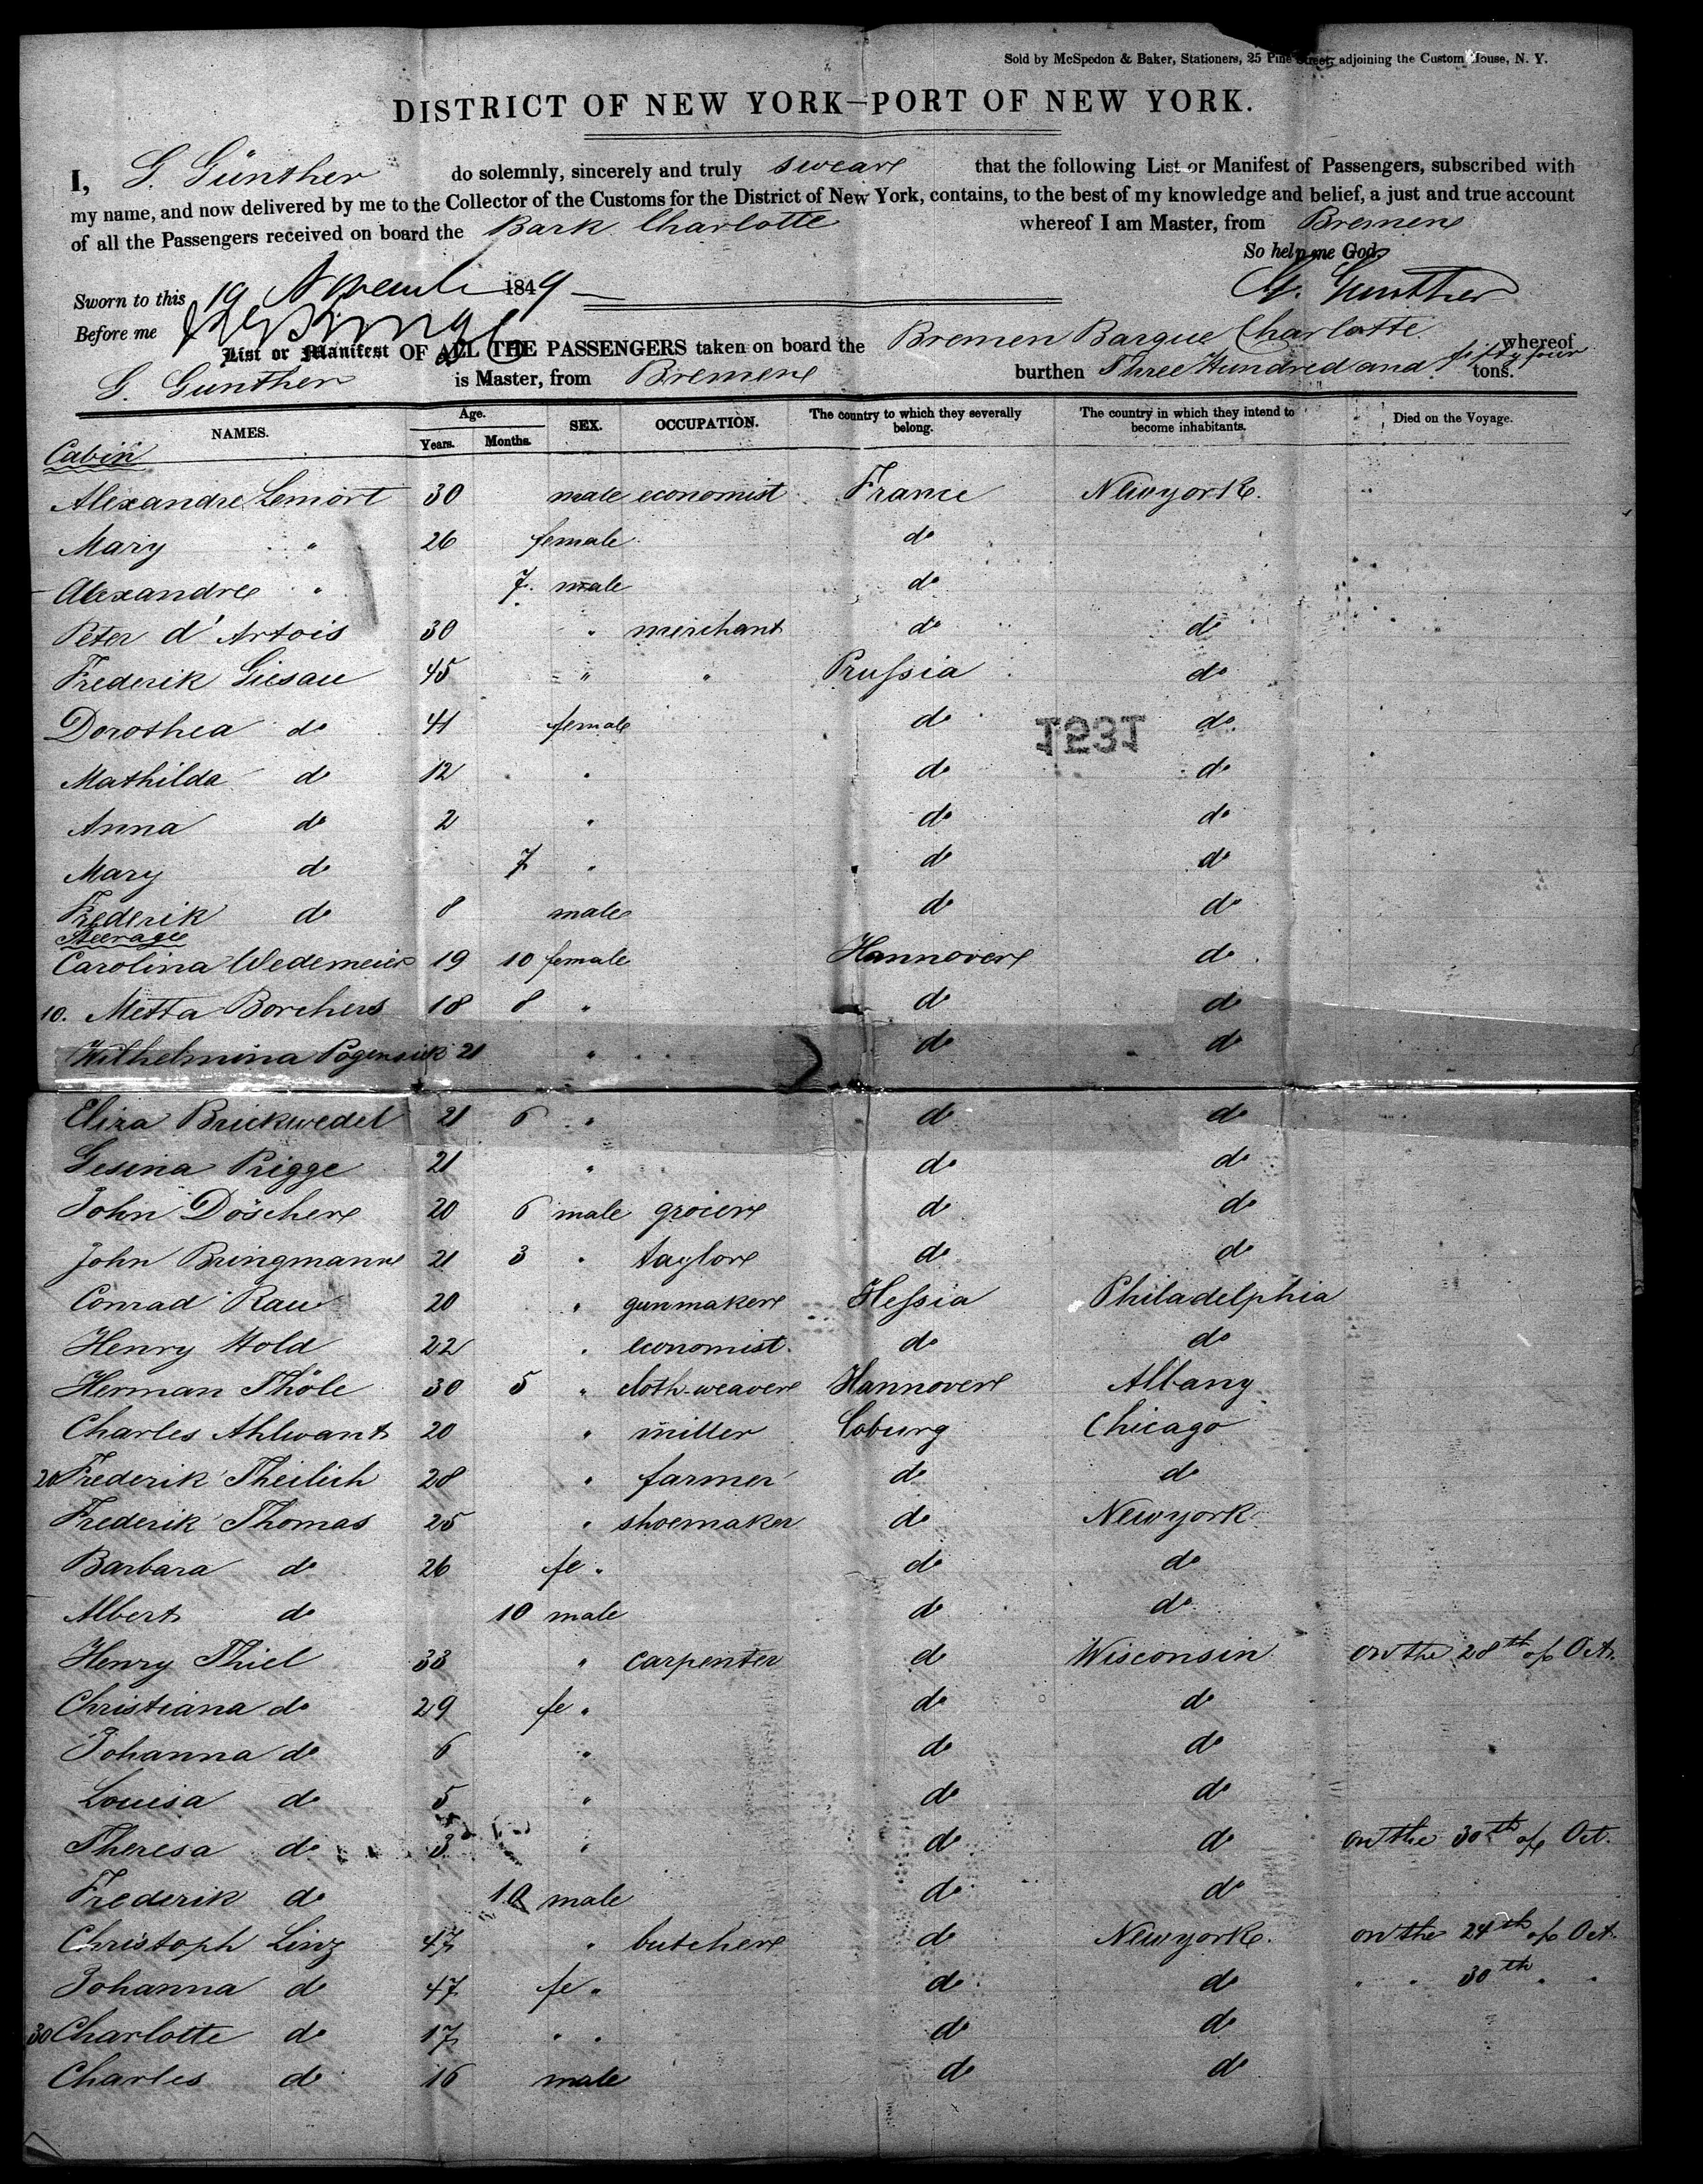 Sold by McSpedon & Baker, Stationers, 25 Pine Street, adjoining the Custom House, N. Y.
DISTRICT OF NEW YORK—PORT OF NEW YORK.
I, G. Günther do solemnly, sincerely and truly sweare that the following List or Manifest of Passengers, subscribed with
my name, and now delivered by me to the Collector of the Customs for the District of New York, contains, to the best of my knowledge and belief, a just and true account
of all the Passengers received on board the Bark Charlotte whereof I am Master, from Bremen
So help me God.
Sworn to this 19 1849 G. Gunther
Before me
List or Manifest OF ALL THE PASSENGERS taken on board the Bremen Barque Charlotte whereof
G. Gunther is Master, from Bremen burthen Three Hundred and fifty four tons.
NAMES. Age. Years. Months. SEX. OCCUPATION. The country to which they severally belong. The country in which they intend to become inhabitants. Died on the Voyage.
Cabin
Alexandre Lemort 30 male economist France Newyork.
Mary " 26 female do
Alexandre " 7 male do
Peter d'Artois 30 " merchant do do
Frederik Giesau 45 " " Prussia do
Dorothea do 41 female do do
1531
Mathilda do 12 " do do
Anna do 2 " do do
Mary do 7 " do do
Frederik do 8 male do do
Steerage
Carolina Wedemeier 19 10 female Hannover do
10. Metta Borchers 18 8 " do do
Wilhelmina Pogensiek 21 " do do
Eliza Brickwedel 21 6 " do do
Gesina Prigge 21 " do do
John Döscher 20 6 male grocier do do
John Bringmann 21 3 " taylor do do
Conrad Rau 20 " gunmaker Hessia Philadelphia
Henry Hold 22 " economist. do do
Herman Thöle 30 5 " cloth-weaver Hannover Albany
Charles Ahlwant 20 " miller Coburg Chicago
20 Frederik Theilich 28 " farmer do do
Frederik Thomas 25 " shoemaker do Newyork
Barbara do 26 fe " do do
Albert do 10 male do do
Henry Thiel 33 " carpenter do Wisconsin on the 28th of Oct.
Christiana do 29 fe " do do
Johanna do 6 " do do
Louisa do 5 " do do
Theresa do 3 " do do on the 30th of Oct.
Frederik do 10 male do do
Christoph Linz 47 " butcher do Newyork. on the 24th of Oct.
Johanna do 47 fe " do do " " 30th " "
30 Charlotte do 17 " " do do
Charles do 16 male do do